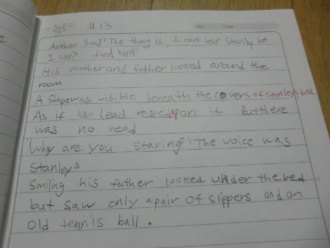 #13
Arthur Said "The thing is, I can hear Stanley be
I can't find him"
His mother and father looked around the
room
A Shape was visible beneath the covers of Stanley's bed
As if head rested up it But there
was no head
Why are you Staring? The voice was
Stanley's
Smiling his father looked under the bed
but saw only a pair of slippers and an
old tennis ball.